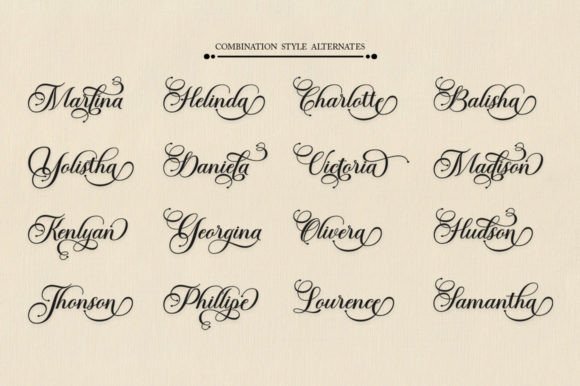 COMBINATION STYLE ALTERNATES
Martina Helinda Charlotte Balisha
Yolistha Daniela Victoria Madison
Kenlyan Georgina Olivera Hudson
Jhonson Phillipe Lourence Samantha